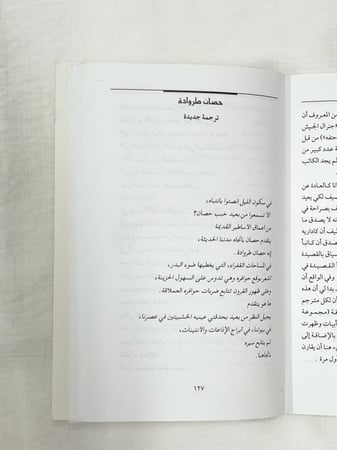 حصان طروادة
ترجمة جديدة
في سكون الليل انصتوا بانتباه،
ألا تسمعوا من بعيد خبب حصان؟
من أعماق الأساطير القديمة
يتقدم حصان باتجاه مدننا الحديثة،
إنه حصان طروادة.
في المساحات القفراء، التي يغطيها ضوء البدر،
أشعر بوقع حوافره وهي تدوس على السهول الحزينة،
وعلى ظهور القرون تتابع ضربات حوافره العملاقة.
ها هو يتقدم
يجيل النظر من بعيد بحدقتي عينيه الخشبيتين في عصرنا،
في بيوتنا، في أبراج الإذاعات والانتينات،
ثم يتابع سيره
باتجاهنا.
١٢٧
من المعروف أن
جنرال الجيش
من قبل
عدد كبير من
لم يجد الكاتب
كالعادة عن
لكي يعيد
بصراحة في
لا يصدق ما
أن كاداريه
أن كاتباً
بالقصيدة
القصيدة في
وفي الواقع أن
بدا لي أن هذه
أن لكل مترجم
(مجموعة
أبيات وظهرت
بالإضافة إلى
هنا أن يقارن
أول مرة.